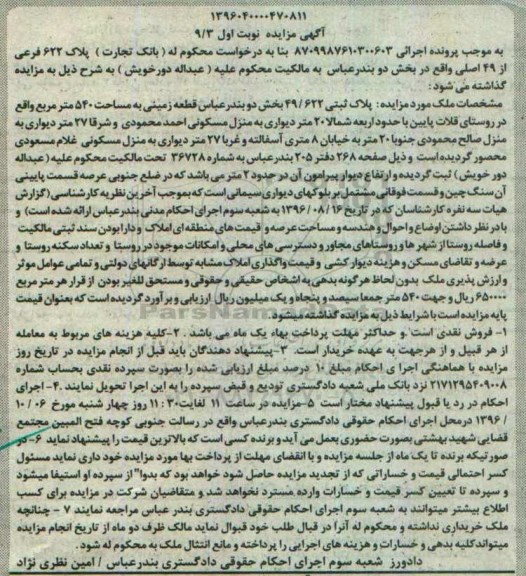 ۱۳۹۶۰۴۰۰۰۰۴۷۰۸۱۱
آگهی مزایده نوبت اول ۹/۳
به موجب پرونده اجرائی ۸۷۰۹۹۸۷۶۱۰۳۰۰۶۰۳ بنا به درخواست محکوم له ( بانک تجارت ) پلاک ۶۲۲ فرعی
از ۴۹ اصلی واقع در بخش دو بندرعباس به مالکیت محکوم علیه ( عبداله دورخویش ) به شرح ذیل به مزایده
گذاشته می شود :
مشخصات ملک مورد مزایده : پلاک ثبتی ۴۹/۶۲۲ بخش دو بندرعباس قطعه زمینی به مساحت ۵۴۰ متر مربع واقع
در روستای قلات پایین با حدود اربعه شمالا ۲۰ متر دیواری به منزل مسکونی احمد محمودی و شرقا ۲۷ متر دیواری به
منزل صالح محمودی جنوبا ۲۰ متر به خیابان ۸ متری آسفالته و غربا ۲۷ متر دیواری به منزل مسکونی غلام مسعودی
محصور گردیده است و ذیل صفحه ۲۶۸ دفتر ۲۰۵ بندرعباس به شماره ۳۶۷۲۸ تحت مالکیت محکوم علیه (عبداله
دور خویش ) ثبت گردیده و ارتفاع دیوار پیرامون آن در حدود ۲ متر می باشد که در ضلع جنوبی عرصه قسمت پایینی
آن سنگ چین و قسمت فوقانی مشتمل بر بلوکهای دیواری سیمانی است که بموجب آخرین نظریه کارشناسی (گزارش
هیات سه نفره کارشناسان که در تاریخ ۱۶ / ۰۸ / ۱۳۹۶ به شعبه سوم اجرای احکام مدنی بندرعباس ارائه شده است ) و
با در نظر داشتن اوضاع و احوال و هندسه و مساحت عرصه و قیمت های منطقه ای املاک و دارا بودن سند ثبتی مالکیت
و فاصله روستا از شهر ها و روستاهای مجاور و دسترسی های محلی و امکانات موجود در روستا و تعداد سکنه روستا و
عرضه و تقاضای مسکن و هزینه دیوار کشی و قیمت واگذاری املاک مشابه توسط ارگانهای دولتی و تمامی عوامل موثر
و ارزش پذیری ملک بدون لحاظ هرگونه بدهی به اشخاص حقیقی و حقوقی و مستحق للغیر بودن از قرار هر متر مربع
۶۵۰۰۰۰ ریال و جهت ۵۴۰ متر جمعا سیصد و پنجاه و یک میلیون ریال ارزیابی و برآورد گردیده است که بعنوان قیمت
پایه مزایده است با شرایط ذیل به مزایده گذاشته میشود .
۱- فروش نقدی است و حداکثر مهلت پرداخت بهاء یک ماه می باشد . ۲-کلیه هزینه های مربوط به معامله
از هر قبیل و از هرجهت به عهده خریدار است. ۳-پیشنهاد دهندگان باید قبل از انجام مزایده در تاریخ روز
مزایده با هماهنگی اجرا ی احکام مبلغ ۱۰ درصد مبلغ ارزیابی شده را بصورت سپرده نقدی بحساب شماره
۲۱۷۱۲۹۵۲۰۹۰۰۸ نزد بانک ملی شعبه دادگستری تودیع و قبض سپرده را به این اجرا تحویل نمایند .۴- اجرای
احکام در رد یا قبول پیشنهاد مختار است ۵-مزایده در ساعت ۱۱ لغایت ۱۱:۳۰ روز چهار شنبه مورخ ۰۶ / ۱۰
/ ۱۳۹۶ درمحل اجرای احکام حقوقی دادگستری بندرعباس واقع در رسالت جنوبی کوچه فتح المبین مجتمع
قضایی شهید بهشتی بصورت حضوری بعمل می آید و برنده کسی است که بالاترین قیمت را پیشنهاد نماید ۶- در
صورتیکه برنده تا یک ماه از جلسه مزایده و با انقضای مهلت از پرداخت بها مورد مزایده خود داری نماید مسئول
کسر احتمالی قیمت و خساراتی که از تجدید مزایده حاصل شود خواهد بود که بدوا" از سپرده او استیفا میشود
و سپرده تا تعیین کسر قیمت و خسارات وارده مسترد نخواهد شد و متقاضیان شرکت در مزایده برای کسب
اطلاع بیشتر میتوانند به شعبه سوم اجرای احکام حقوقی دادگستری بندر عباس مراجعه نمایند ۷ - چنانچه
ملک خریداری نداشته و محکوم له آنرا در قبال طلب خود قبول نماید مالک ظرف دو ماه از تاریخ انجام مزایده
میتواند کلیه بدهی و خسارات و هزینه های اجرایی را پرداخته و مانع انتقال ملک به محکوم له شود .
دادورز شعبه سوم اجرای احکام حقوقی دادگستری بندرعباس / امین نظری نژاد